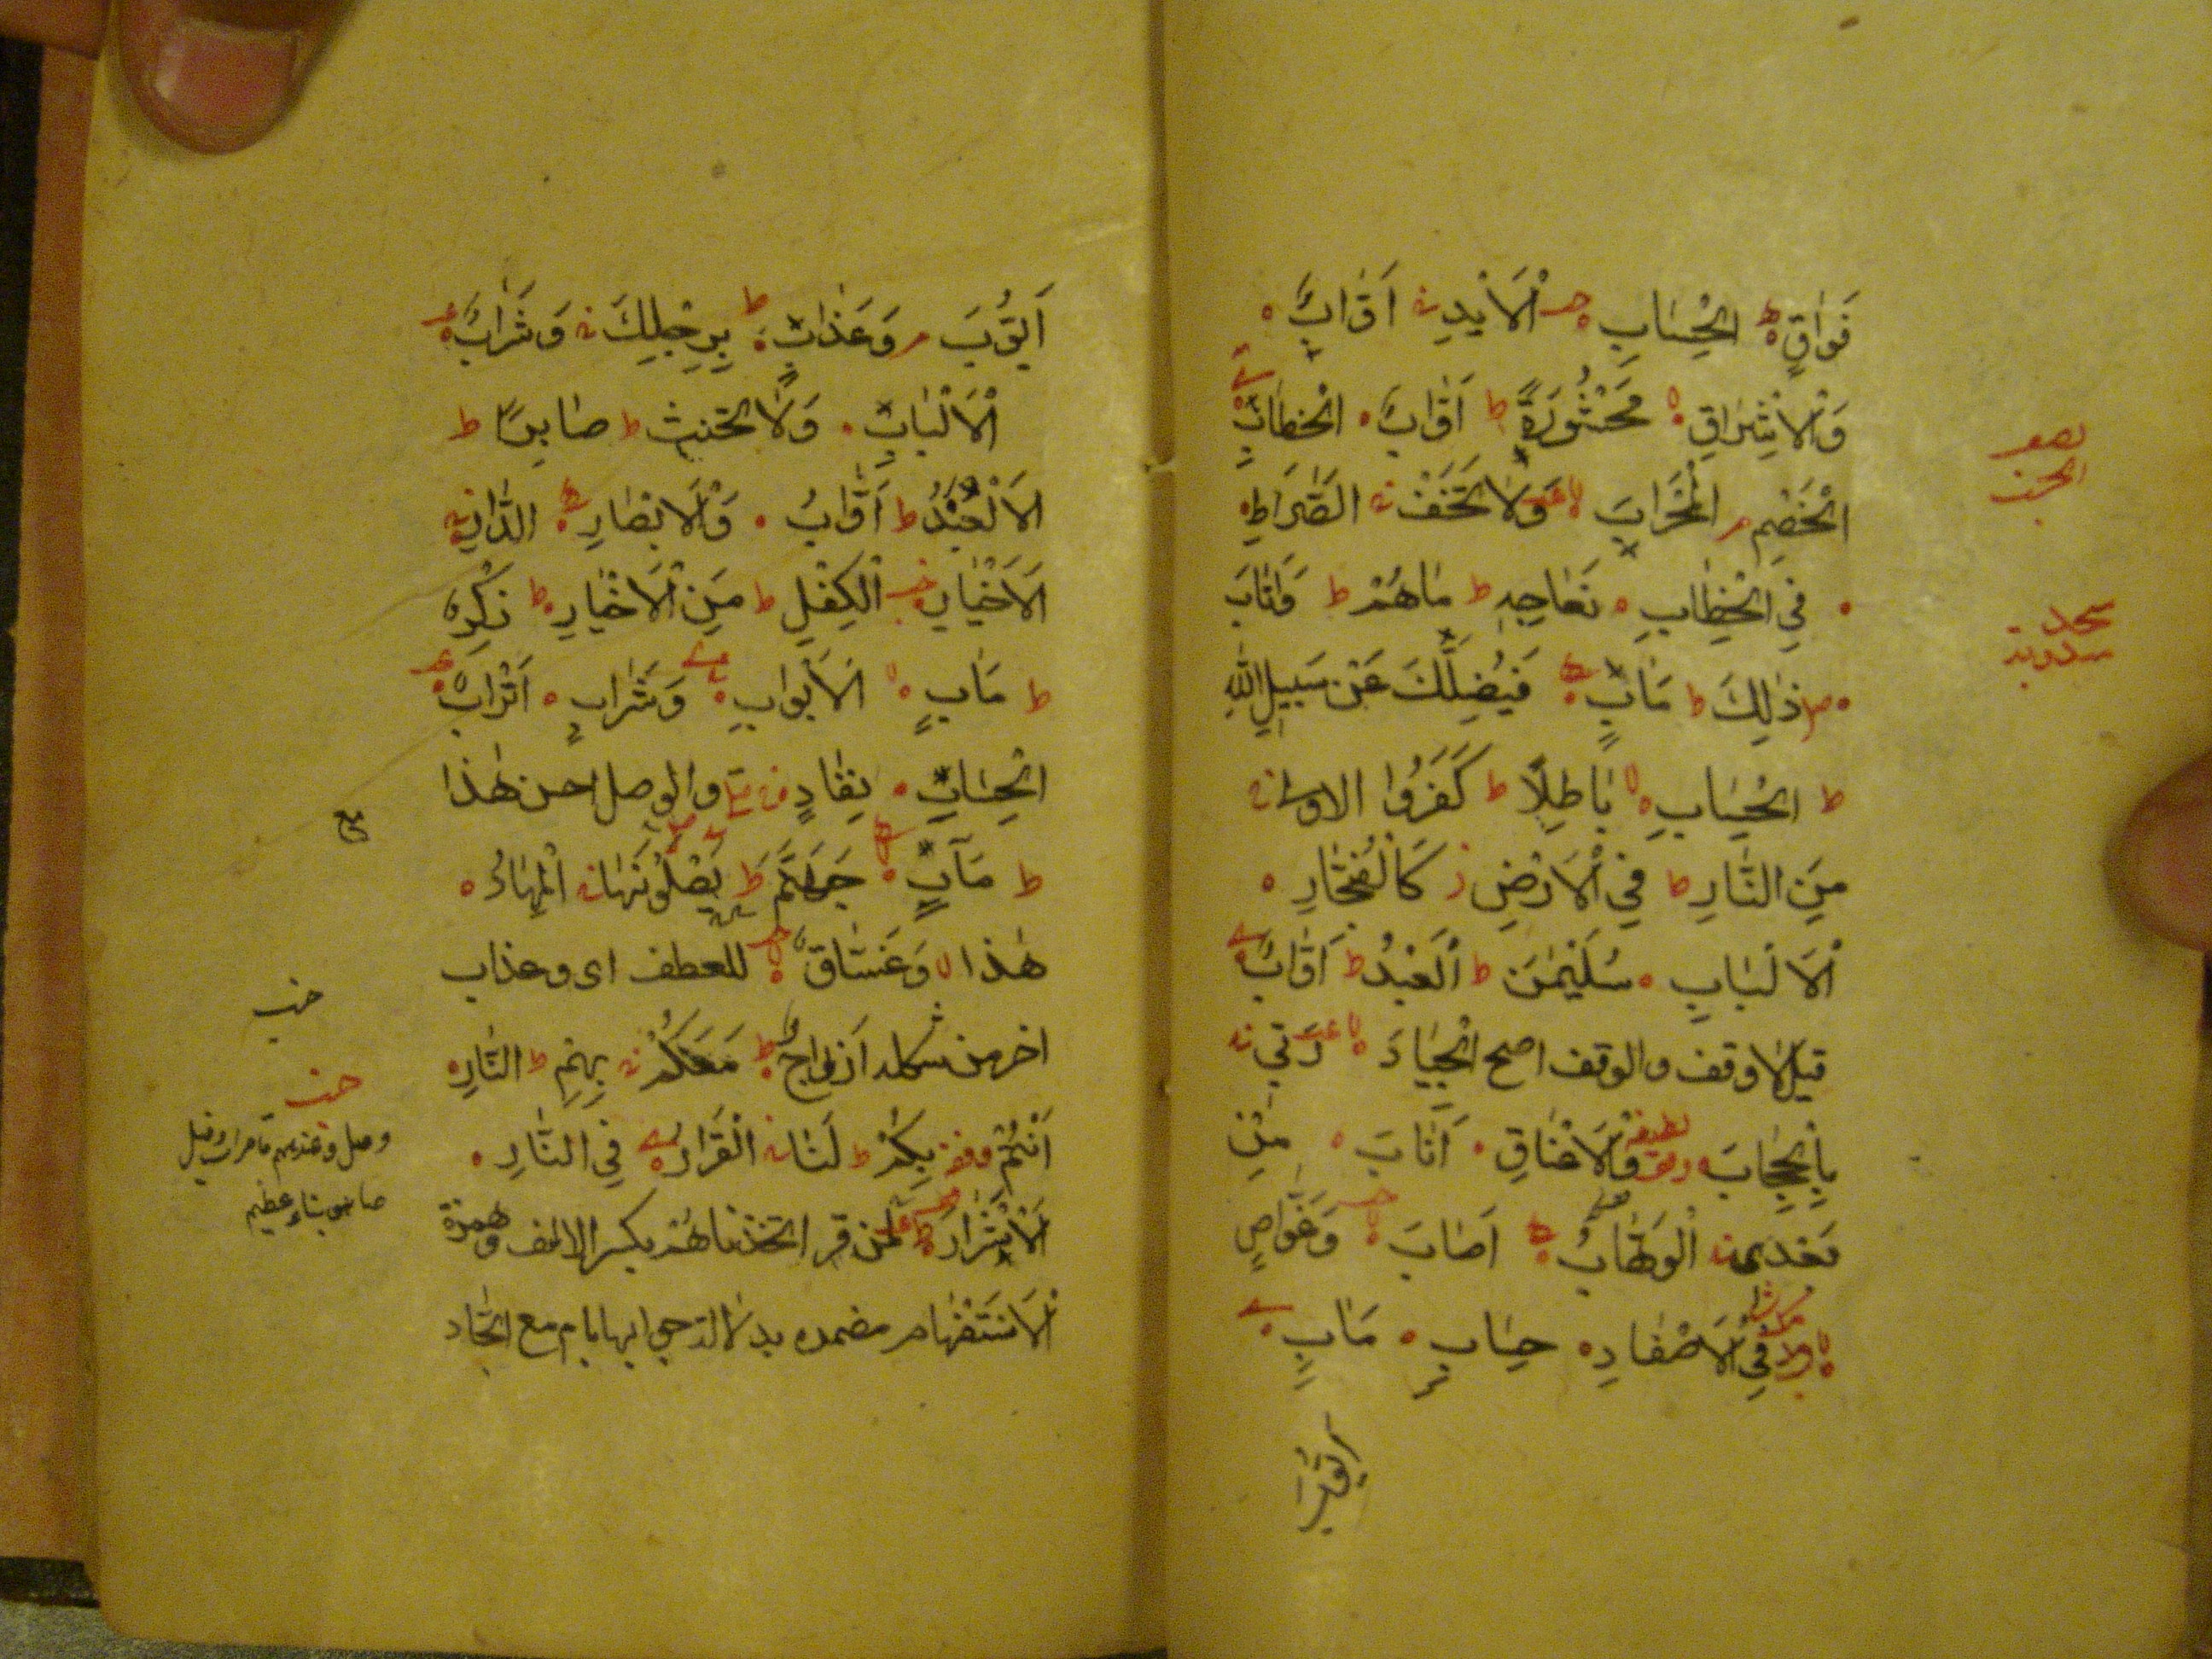 فَوَاقٍ ط الْحِسَابِ ه الْاَيْدِ ج اَوَّابٌ ه
وَالْاِشْرَاقِ لا مَحْشُورَةً ط اَوَّابٌ ه الْخِطَابِ
الْخَصْمِ م الْمِحْرَابَ لا وَلَا تَخَفْ ج الصِّرَاطِ ه
فِي الْخِطَابِ ه نَعَاجِهِ ط مَاهُمْ ط وَاَنَابَ
ذٰلِكَ ط مَاٰبٍ ه فَيُضِلَّكَ عَنْ سَبِيلِ اللهِ
ط الْحِسَابِ ه بَاطِلًا ط كَفَرُوا الاولى ج
مِنَ النَّارِ ط فِي الْاَرْضِ ز كَالْفُجَّارِ ه
الْاَلْبَابِ ه سُلَيْمٰنَ ط الْعَبْدُ ط اَوَّابٌ
قيل لا وقف والوقف اصح الْجِيَادُ لا رَبِّي ج
بِالْحِجَابِ وَالْاَعْنَاقِ ه اَنَابَ ه مِنْ
بَعْدِى ج الْوَهَّابُ ه اَصَابَ لا وَغَوَّاصٍ
فِي الْاَصْفَادِ ه حِسَابٍ ه مَاٰبٍ
سجدة
اَيُّوبَ م وَعَذَابٍ ط بِرِجْلِكَ ج وَشَرَابٌ
الْاَلْبَابِ ه وَلَا تَحْنَثْ ط صَابِرًا ط
الْعَبْدُ ط اَوَّابٌ ه وَالْاَبْصَارِ ه الدَّارِ ج
الْاَخْيَارِ الْكِفْلِ ط مِنَ الْاَخْيَارِ ط ذِكْرٌ
ط مَاٰبٍ لا الْاَبْوَابُ ه وَشَرَابٍ ه اَتْرَابٌ
الْحِسَابِ ه نَفَادٍ والوصل احسن هٰذَا
ط مَاٰبٍ لا جَهَنَّمَ ط يَصْلَوْنَهَا ج الْمِهَادُ ه
هٰذَا لا وَغَسَّاقٌ لا للعطف اى وعذاب
اخر من شكله اَزْوَاجٌ ط مَعَكُمْ ج بِهِمْ ط النَّارِ ه
اَنْتُمْ بِكُمْ ط لَنَا ج الْقَرَارُ فِي النَّارِ ه
الْاَشْرَارِ ط لمن قرا اتخذناهُمْ بكسر الالف وهمزة
الاستفهام مضمره بدلالة جوابها بام مع اتحاد